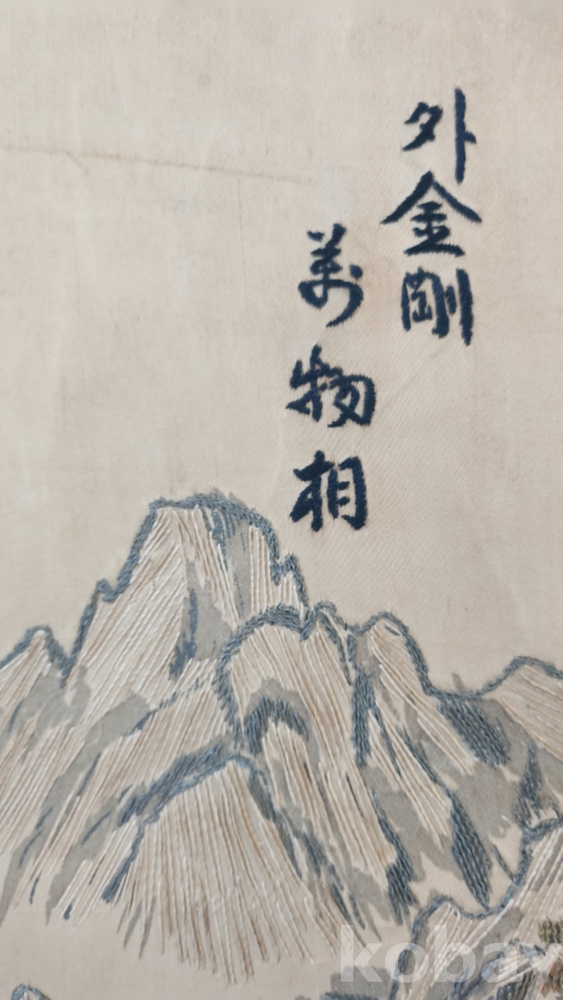 外金剛
萬物相
kobay